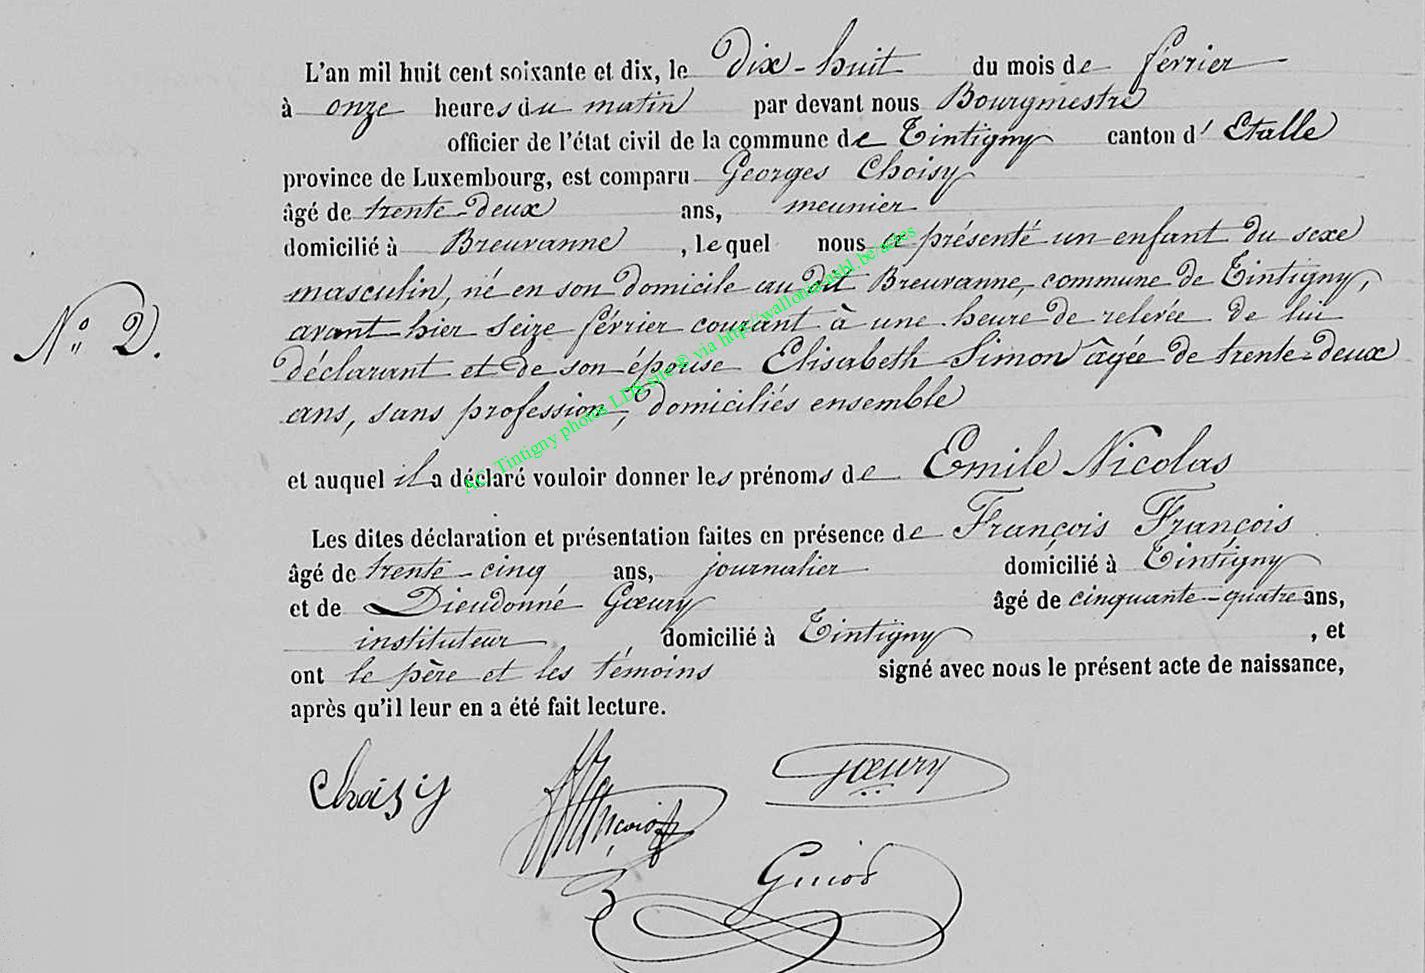 L'an mil huit cent soixante et dix, le Dix-huit du mois de février
à onze heures du matin par devant nous Bourgmestre
officier de l'état civil de la commune de Tintigny canton d'Etalle
province de Luxembourg, est comparu Georges Choisy
âgé de trente-deux ans, meunier
domicilié à Breuvanne, lequel nous a présenté un enfant du sexe
masculin, né en son domicile au dit Breuvanne, commune de Tintigny,
avant hier seize février courant à une heure de relevée de lui
N° 2.
déclarant et de son épouse Elisabeth Simon âgée de trente-deux
ans, sans profession, domiciliés ensemble
et auquel il a déclaré vouloir donner les prénoms de Emile Nicolas
Les dites déclaration et présentation faites en présence de François François
âgé de trente-cinq ans, journalier domicilié à Tintigny
et de Dieudonné Gœury âgé de cinquante-quatre ans,
instituteur domicilié à Tintigny, et
ont le père et les témoins signé avec nous le présent acte de naissance,
après qu'il leur en a été fait lecture.
Choisy François Gœury
AC Tintigny photos LDS site © via http://wallonia.asbl.be/actes